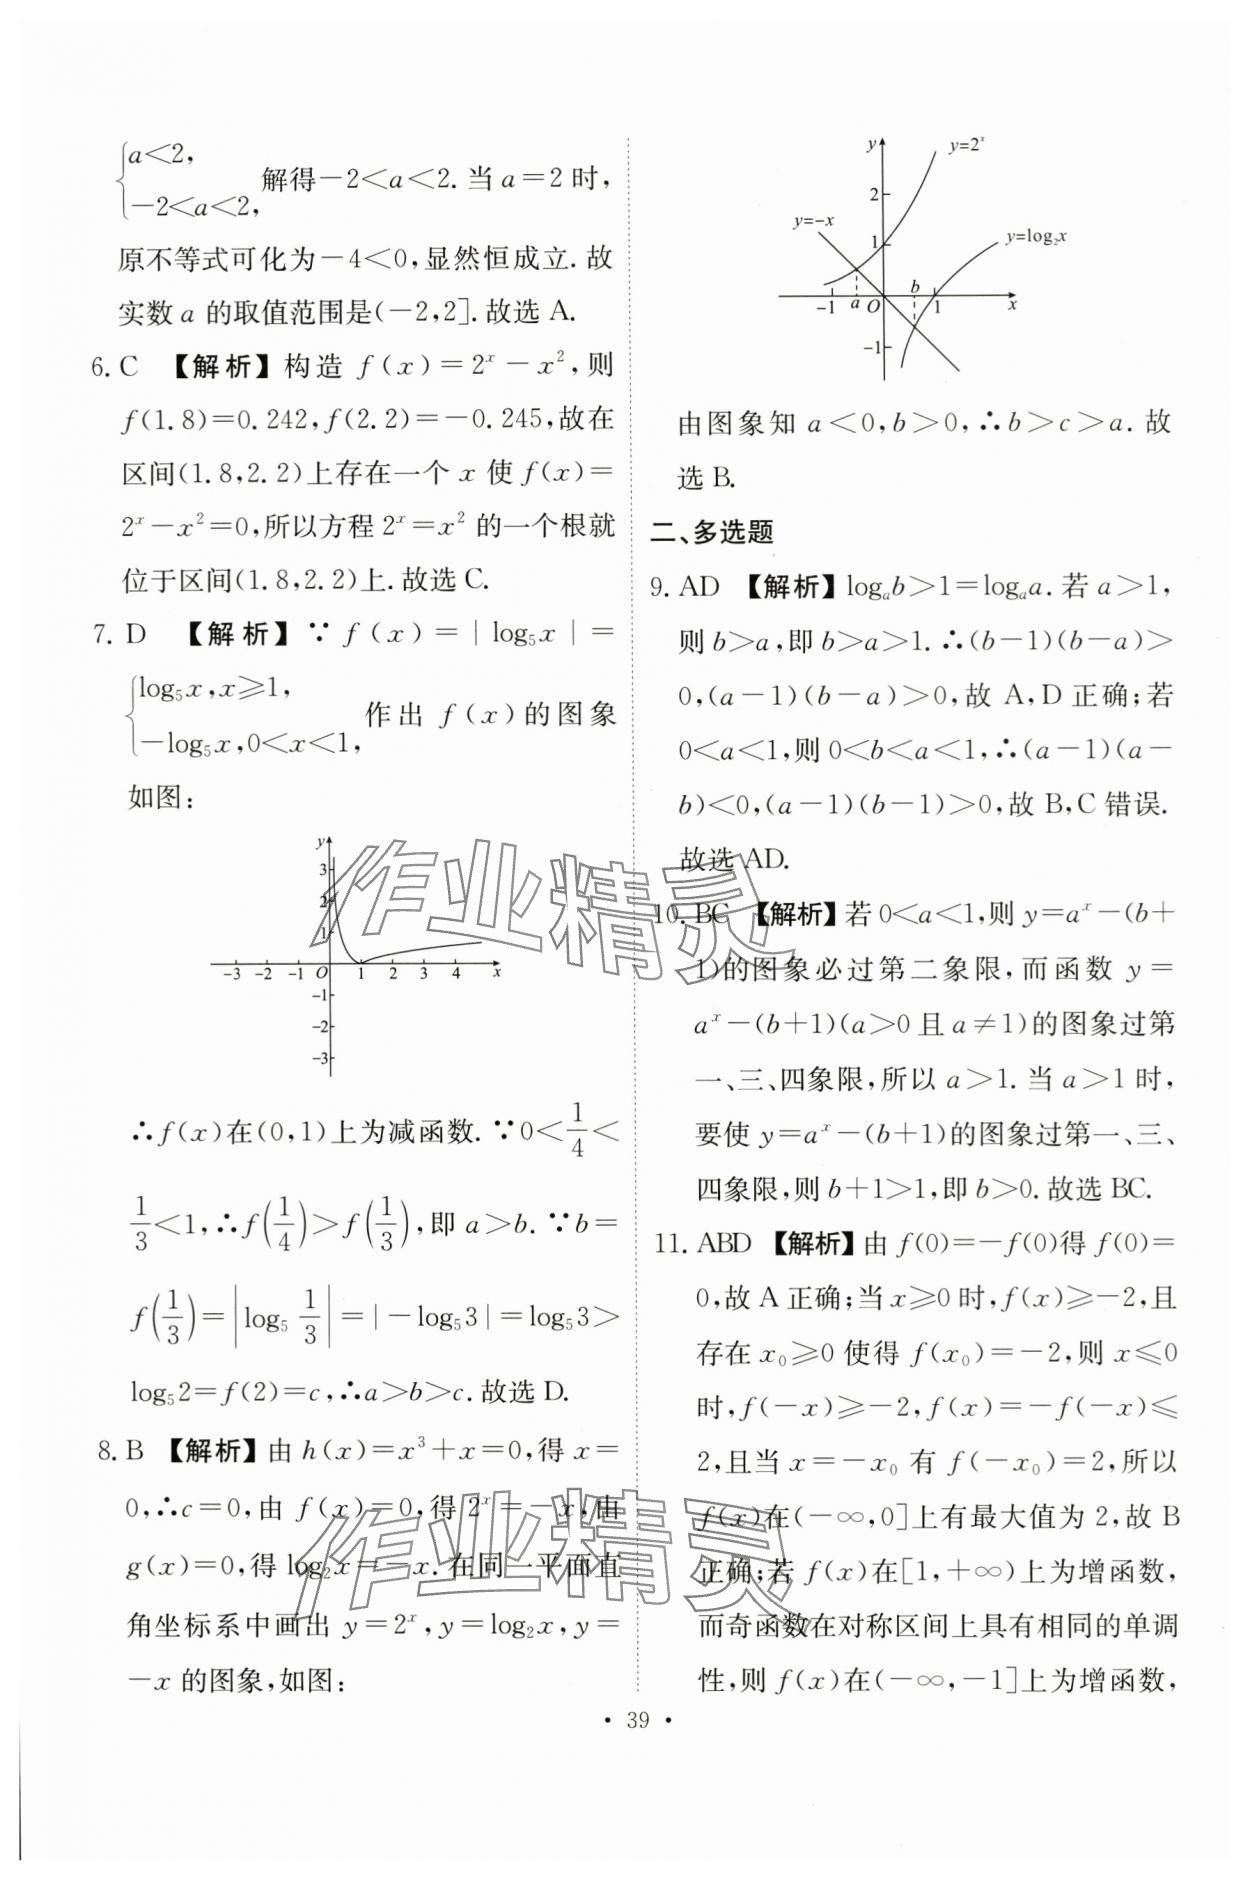 {a<2,
-2<a<2, 解得-2<a<2.当a=2时,
原不等式可化为-4<0,显然恒成立.故
实数a的取值范围是(-2,2].故选A.
6.C 【解析】构造f(x)=2ˣ-x²,则
f(1.8)=0.242,f(2.2)=-0.245,故在
区间(1.8,2.2)上存在一个x使f(x)=
2ˣ-x²=0,所以方程2ˣ=x²的一个根就
位于区间(1.8,2.2)上.故选C.
7. D 【解析】∵f(x)=|log₅x|=
{log₅x,x≥1,
-log₅x,0<x<1, 作出f(x)的图象
如图:
y
3
2
1
-3 -2 -1 O 1 2 3 4 x
-1
-2
-3
∴f(x)在(0,1)上为减函数.∵0<1/4<
1/3<1,∴f(1/4)>f(1/3),即a>b.∵b=
f(1/3)=|log₅ 1/3|=|-log₅3|=log₅3>
log₅2=f(2)=c,∴a>b>c.故选D.
8.B 【解析】由h(x)=x³+x=0,得x=
0,∴c=0,由f(x)=0,得2ˣ=-x,由
g(x)=0,得log₂x=-x.在同一平面直
角坐标系中画出y=2ˣ,y=log₂x,y=
-x的图象,如图:
y
y=2ˣ
2
y=-x
1
y=log₂x
b
-1 a O 1 x
-1
由图象知a<0,b>0,∴b>c>a.故
选B.
二、多选题
9.AD 【解析】logₐb>1=logₐa.若a>1,
则b>a,即b>a>1.∴(b-1)(b-a)>
0,(a-1)(b-a)>0,故A,D正确;若
0<a<1,则0<b<a<1,∴(a-1)(a-
b)<0,(a-1)(b-1)>0,故B,C错误.
故选AD.
10.BC 【解析】若0<a<1,则y=aˣ-(b+
1)的图象必过第二象限,而函数y=
aˣ-(b+1)(a>0且a≠1)的图象过第
一、三、四象限,所以a>1.当a>1时,
要使y=aˣ-(b+1)的图象过第一、三、
四象限,则b+1>1,即b>0.故选BC.
11.ABD 【解析】由f(0)=-f(0)得f(0)=
0,故A正确;当x≥0时,f(x)≥-2,且
存在x₀≥0使得f(x₀)=-2,则x≤0
时,f(-x)≥-2,f(x)=-f(-x)≤
2,且当x=-x₀有f(-x₀)=2,所以
f(x)在(-∞,0]上有最大值为2,故B
正确;若f(x)在[1,+∞)上为增函数,
而奇函数在对称区间上具有相同的单调
性,则f(x)在(-∞,-1]上为增函数,
• 39 •
作业精灵
作业精灵